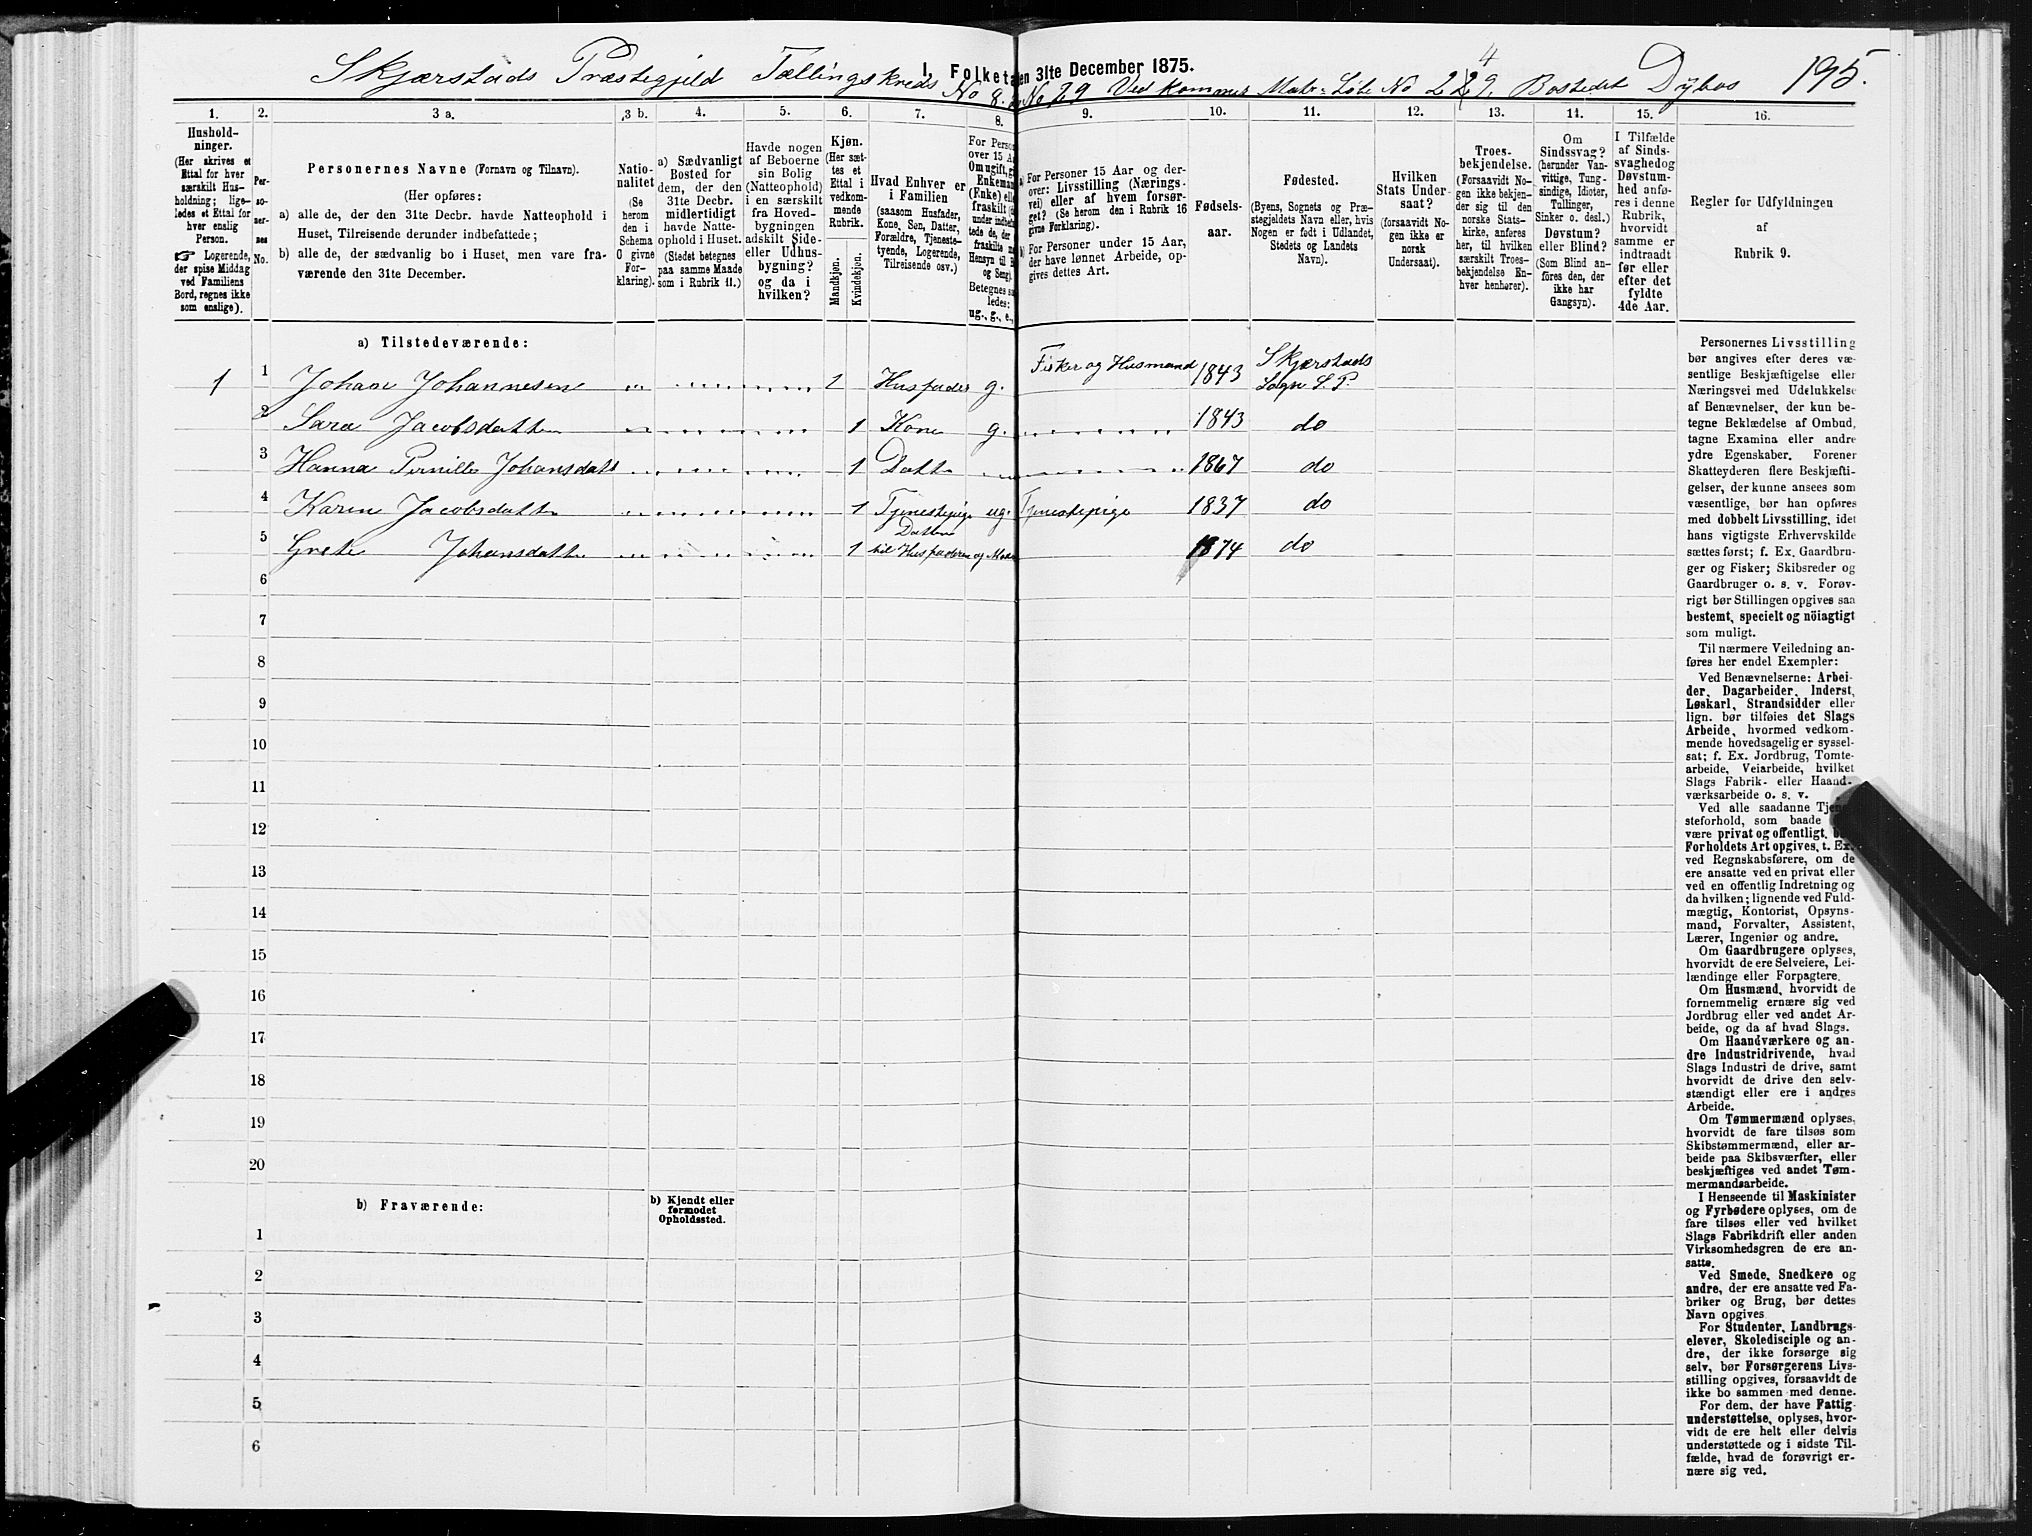 Skjærstads Præstegjeld Tællingskreds No 8. No 29 Vedkommer Matr: Løbe No 229. Bostedet Dybos 195.
4
I. Folketa en 31te December 1875.
1. 2. 3 a. 3 b. 4. 5. 6. 7. 8. 9. 10. 11. 12. 13. 14. 15. 16.
Hushold-
ninger.
(Her skrives et
Ettal for hver
særskilt Hus-
holdning; lige-
ledes et Ettal for
hver enslig
Person.
☞ Logerende,
der spise Middag
ved Familiens
Bord, regnes ikke
som enslige).
Per-
so-
ner-
nes
No.
Personernes Navne (Fornavn og Tilnavn).
(Her opføres:
a) alle de, der den 31te Decbr. havde Natteophold i
Huset, Tilreisende derunder indbefattede;
b) alle de, der sædvanlig bo i Huset, men vare fra-
værende den 31te December.
Natio-
nalitet
(Se
herom
den i
Schema
O givne
For-
klaring).
a) Sædvanligt
Bosted for
dem, der den
31te Decbr.
midlertidigt
havde Natte-
ophold i Huset.
(Stedet betegnes
paa samme Maade
som i Rubrik 11.)
Havde nogen
af Beboerne
sin Bolig
(Natteophold)
i en særskilt
fra Hoved-
bygningen
adskilt Side-
eller Udhus-
bygning?
og da i
hvilken?
Kjøn.
(Her sæt-
tes et
Ettal i
vedkom-
mende
Rubrik.
Mandkjøn.
Kvindekjøn.
Hvad Enhver er
i Familien
(saasom Husfader,
Kone, Søn, Datter,
Forældre, Tjeneste-
tyende, Logerende,
Tilreisende osv.)
For Person
over 15 A
Om ugift, gi
Enkeman
(Enke) elle
fraskilt
under indbef
tede de, der
fraskilte m
Hensyn til B
og Seng).
Betegnes sa
ledes:
ug., g., e.,
a) For Personer 15 Aar og der-
over: Livsstilling (Nærings-
vei) eller af hvem forsør-
get? (Se herom den i Rubrik 16
givne Forklaring).
b) For Personer under 15 Aar,
der have lønnet Arbeide, op-
gives dettes Art.
Fødsels-
aar.
Fødested.
(Byens, Sognets og Præ-
stegjeldets Navn eller, hvis
Nogen er født i Udlandet,
Stedets og Landets
Navn).
Hvilken
Stats Under-
saat?
(forsaavidt No-
gen ikke er
norsk
Undersaat).
Troes-
bekjendelse.
(Forsaavidt No-
gen ikke bekjen-
der sig til den
norske Stats-
kirke, anføres
her, til hvilken
særskilt Troes-
bekjendelse En-
hver henhører).
Om
Sindssvag?
(herunder Van-
vittige, Tung-
sindige, Idioter,
Tullinger,
Sinker o. desl.)
Døvstum?
eller Blind?
(Som Blind an-
føres den, der
ikke har
Gangsyn).
I Tilfælde
af Sinds-
svaghed og
Døvstum-
hed anfø-
res i denne
Rubrik,
hvorvidt
samme er
indtraadt
før eller
efter det
fyldte
4de Aar.
Regler for Udfyldningen
af
Rubrik 9.
a) Tilstedeværende:
1 1 Johan Johannesen 1 Husfader g. Fisker og Husmand 1843 Skjærstads
Sogn S. P.
2 Sara Jacobsdatter 1 Kone g. 1843 do
3 Hanna Pernille Johansdatt 1 Datter 1867 do
4 Karen Jacobsdatter 1 Tjenestepige ug. Tjenestepige 1837 do
5 Grete Johansdatter 1 Datter
til Husfaderen og Moder 1874 do
6
7
8
9
10
11
12
13
14
15
16
17
18
19
20
b) Fraværende:
b) Kjendt eller
formodet
Opholdssted.
1
2
3
4
5
6
Personernes Livsstilling
bør angives efter deres væ-
sentlige Beskjæftigelse eller
Næringsvei med Udelukkelse
af Benævnelser, der kun be-
tegne Beklædelse af Ombud,
tagne Examina eller andre
ydre Egenskaber. Forener
Skatteyderen flere Beskjæfti-
gelser, der kunne ansees som
væsentlige, bør han opføres
med dobbelt Livsstilling, idet
hans vigtigste Erhvervskilde
sættes først; f. Ex. Gaardbru-
ger og Fisker; Skibsreder og
Gaardbruger o. s. v. Forøv-
rigt bør Stillingen opgives saa
bestemt, specielt og nöiagtigt
som muligt.
Til nærmere Veiledning an-
føres her endel Exempler:
Ved Benævnelserne: Arbei-
der, Dagarbeider, Inderst,
Løskarl, Strandsidder eller
lign. bør tilføies det Slags
Arbeide, hvormed vedkom-
mende hovedsagelig er syssel-
sat; f. Ex. Jordbrug, Tomte-
arbeide, Veiarbeide, hvilket
Slags Fabrik- eller Haand-
værksarbeide o. s. v.
Ved alle saadanne Tjene-
steforhold, som baade
være privat og offentligt, bør
Forholdets Art opgives, t. Ex.
ved Regnskabsførere, om de
ere ansatte ved en privat eller
ved en offentlig Indretning og
da hvilken; lignende ved Fuld-
mægtig, Kontorist, Opsyns-
mand, Forvalter, Assistent,
Lærer, Ingeniør og andre.
Om Gaardbrugere oplyses,
hvorvidt de ere Selveiere, Lei-
lændinge eller Forpagtere.
Om Husmænd, hvorvidt de
fornemmelig ernære sig ved
Jordbrug eller ved andet Ar-
beide, og da af hvad Slags.
Om Haandværkere og an-
dre Industridrivende, hvad
Slags Industri de drive, samt
hvorvidt de drive den selv-
stændigt eller ere i andres
Arbeide.
Om Tømmermænd oplyses,
hvorvidt de fare tilsøs som
Skibstømmermænd, eller ar-
beide paa Skibsværfter, eller
beskjæftiges ved andet Tøm-
mermandsarbeide.
I Henseende til Maskinister
og Fyrbødere oplyses, om de
fare tilsøs eller ved hvilket
Slags Fabrikdrift eller anden
Virksomhedsgren de ere an-
satte.
Ved Smede, Snedkere og
andre, der ere ansatte ved Fa-
briker og Brug, bør dettes
Navn opgives
For Studenter, Landbrugs-
elever, Skoledisciple og an-
dre, der ikke forsørge sig
selv, bør Forsørgerens Livs-
stilling opgives, forsaavidt de
ikke bo sammen med denne.
For dem, der have Fattig-
understøttelse, oplyses, hvor-
vidt de ere helt eller delvis
understøttede og i sidste Til-
fælde, hvad de forøvrigt er-
nære sig ved.